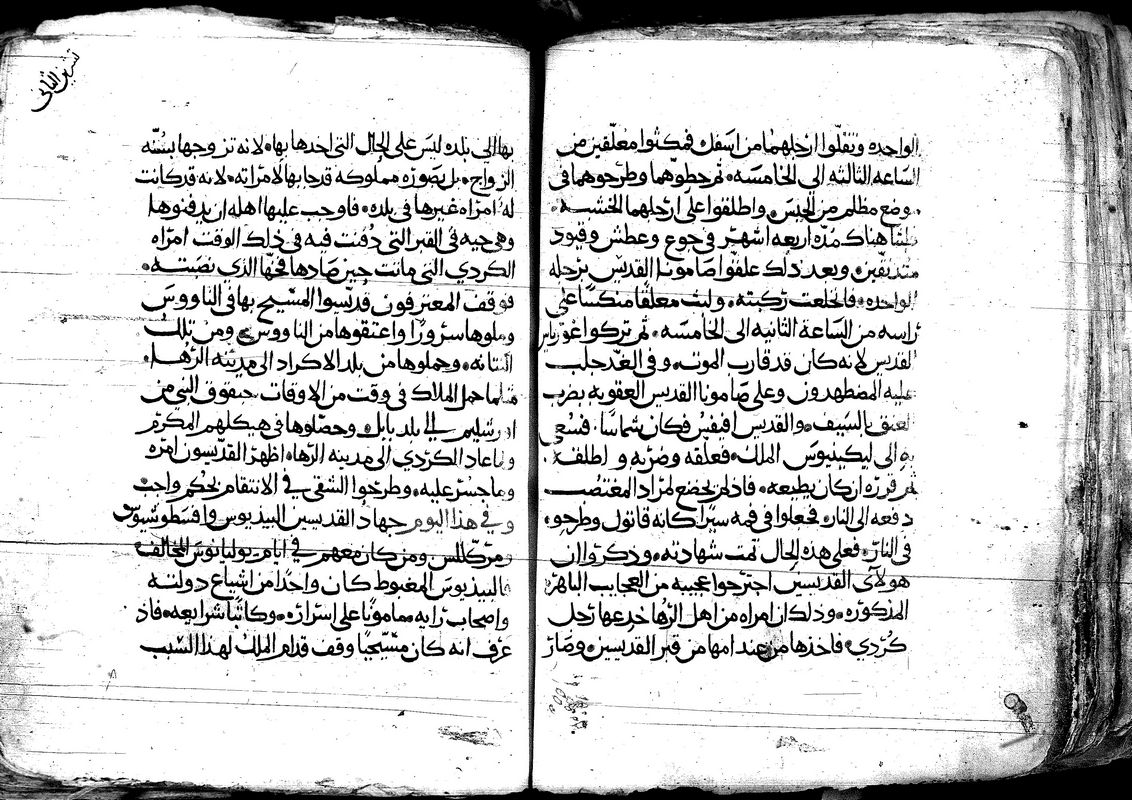 الواحده وثقلوا ارجلهما من اسفل فمكثوا معلقين من
الساعه الثالثه الى الخامسه. ثم حطوهما وطرحوهما في
موضع مظلم من الحبس. واطلقوا على ارجلهما الخشبه.
هناك مده اربعه اشهر في جوع وعطش وقيود
وبعد ذلك علقوا صامونا القديس برجله
الواحده. فانخلعت ركبته. ولبث معلقا منكسا على
راسه من الساعه الثانيه الى الخامسه. ثم تركوا غورياس
القديس لانه كان قد قارب الموت. وفي الغد جلب
عليه المضطهدون وعلى صامونا القديس العقوبه بضرب
العنق بالسيف. والقديس افيفس فكان شماسا. فسعي
به الى ليكينيوس الملك. فعلقه وضربه و اطلقه.
ثم قرره ان كان يطيعه. فاذ لم يخضع لمراد المغتصب
دفعه الى النار. فجعلوا في فمه سيرا كانه قانول وطرحوه
في النار. فعلى هذه الحال تمت شهادته. وذكروا ان
هولاى القديسين اجترحوا عجيبه من العجايب الباهره
المذكوره. وذلك ان امراه من اهل الرها خدعها رجل
كردي. فاخذها من عند امها من قبر القديسين. وصار
تشرين الثاني
بها الى بلده ليس على الحال التى اخدها بها. لانه تزوجها بسنه
الزواج. بل بصوره مملوكه قد جا بها لامراته. لانه قد كانت
له امراه غيرها في بلده. فاوجب عليها اهله ان يدفنوها
وهي حيه في القبر التى دفنت فيه في ذلك الوقت امراه
الكردي التى ماتت حين صادها فخها الذي نصبته.
فوقف المعترفون قديسوا المسيح بها في الناووس
وملوها سرورا واعتقوها من الناووس ومن تلك
النتانه. وحملوها من بلد الاكراد الى مدينه الرها.
مثلما حمل الملاك في وقت من الاوقات حبقوق النبي من
اورشليم الي بلد بابل. وحصلوها في هيكلهم المكرم
ولما عاد الكردي الى مدينه الرها. اظهر القديسون امره
وما جسر عليه. وطرحوا الشقي في الانتقام بحكم واجب
وفي هذا اليوم جهاد القديسين البيذيوس وافسطوشيوس
ومركللس ومن كان معهم في ايام يوليانوس المخالف
فالبيذيوس المغبوط كان واحدا من اشياع دولته
واصحاب رايه. مامونا على اسراره. وكاتبا شرايعه. فاذ
عرف انه كان مسيحيا وقف قدام الملك لهذا السبب